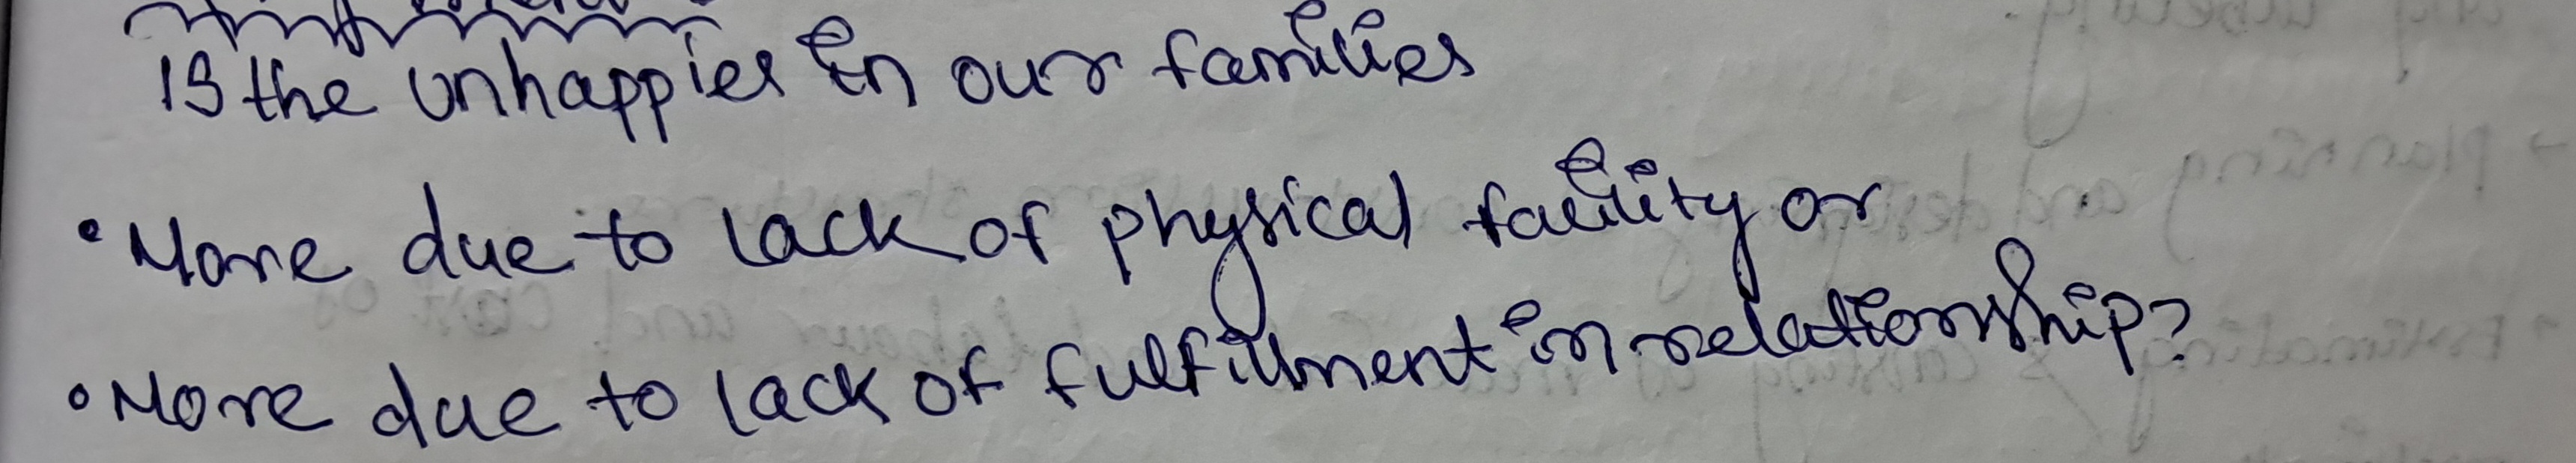 Is the unhappies in our families
• More due to lack of physical facility or
• More due to lack of fulfillment in relationship?